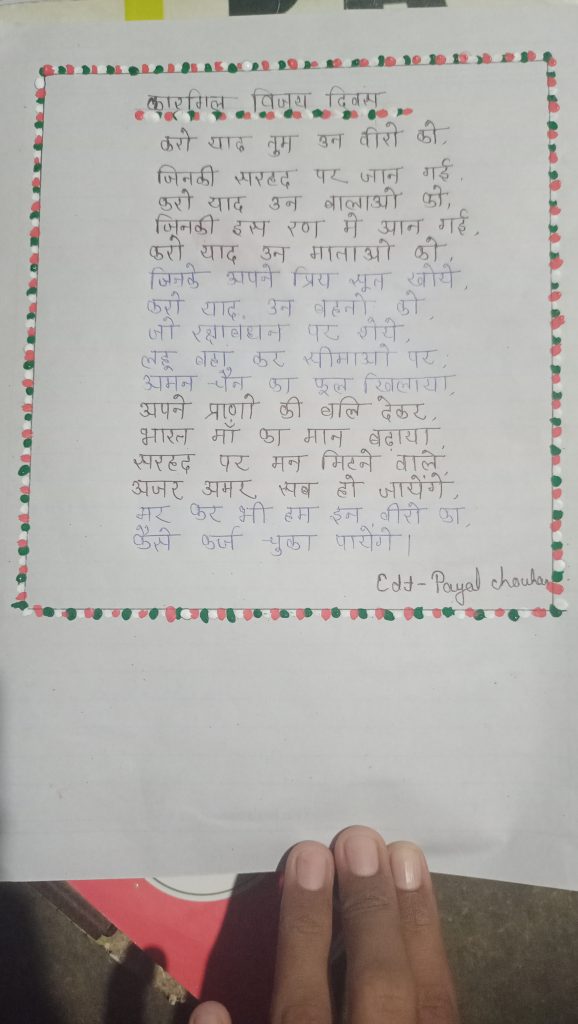 कारगिल विजय दिवस
करो याद तुम उन वीरो को,
जिनकी सरहद पर जान गई,
करो याद उन बालाओ को,
जिनकी इस रण मे आन गई,
करो याद उन माताओ को,
जिनके अपने प्रिय सूत खोये,
करो याद उन बहनो को,
जो रक्षाबधान पर रोये,
लहू बहा कर सीमाओ पर,
अमन चैन का फूल खिलाया,
अपने प्राणो की बलि देकर,
भारत माँ का मान बढ़ाया,
सरहद पर मन मिटने वाले,
अजर अमर सब हो जायेंगे,
मर कर भी हम इन वीरो का,
कैसे कर्ज चुका पायेंगे।
Cdt-Payal chouhan